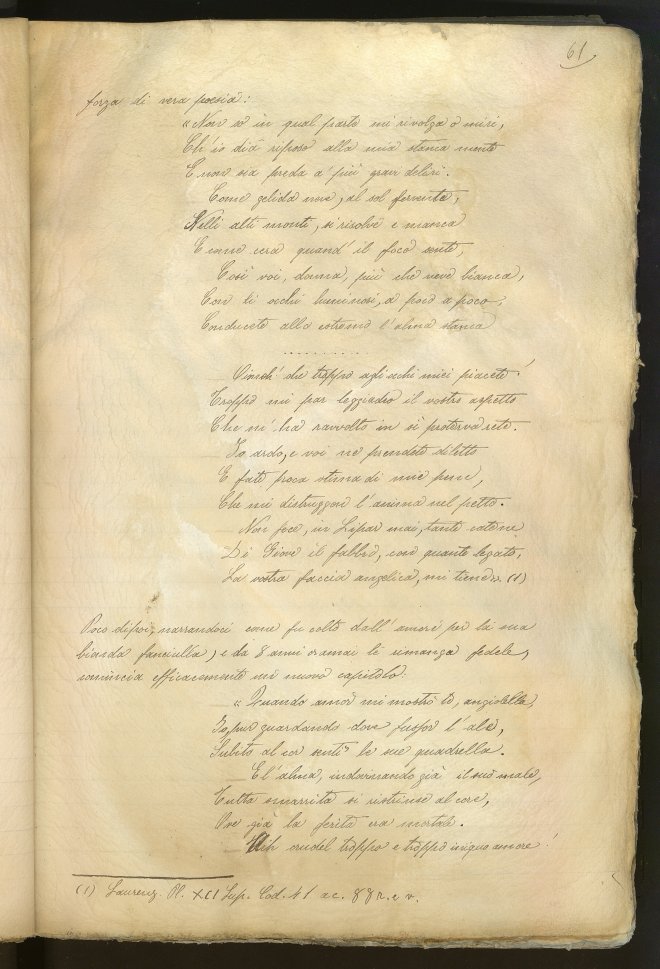 61
forza di vera poesia:
"Non so in qual parte mi rivolga o miri,
Ch'io dia riposo alla mia stanca mente
E non sia preda a più gravi deliri.
Come gelida neve, al sol fervente,
Nelli alti monti, si risolve e manca
E come cera quand'il foco sente,
Così voi, donna, più che neve bianca,
Con li occhi luminosi, a poco a poco,
Conducete allo estremo l'alma stanca
. . . . . . . . . .
Oimè! che troppo agli occhi miei piacete!
Troppo mi par leggiadro il vostro aspetto
Che m'ha ravvolto in sì proterva rete.
Io ardo, e voi ne prendete diletto
E fate poca stima di mie pene,
Che mi distruggon l'anima nel petto.
Non fece, in Lipar mai, tante catene
Di Giove il fabbro, con quante legato,
La vostra faccia angelica, mi tiene". (1)
Poco dipoi, narrandoci come fu colto dall'amore per la sua
bionda fanciulla, e da 8 anni oramai le rimanga fedele,
comincia efficacemente un nuovo capitolo:
"Quando amor mi mostrò te, angioletta,
Io, pur guardando dove fusser l'ale,
Subito al cor senti' le sue quadrella.
E l'alma, indovinando già il suo male,
Tutta smarrita si ristrinse al core,
Ove già la ferita era mortale.
Ahi crudel troppo e troppo iniquo amore!
(1) Laurenz. Pl. XCI Sup. Cod. 41 a c. 88 r. e v.